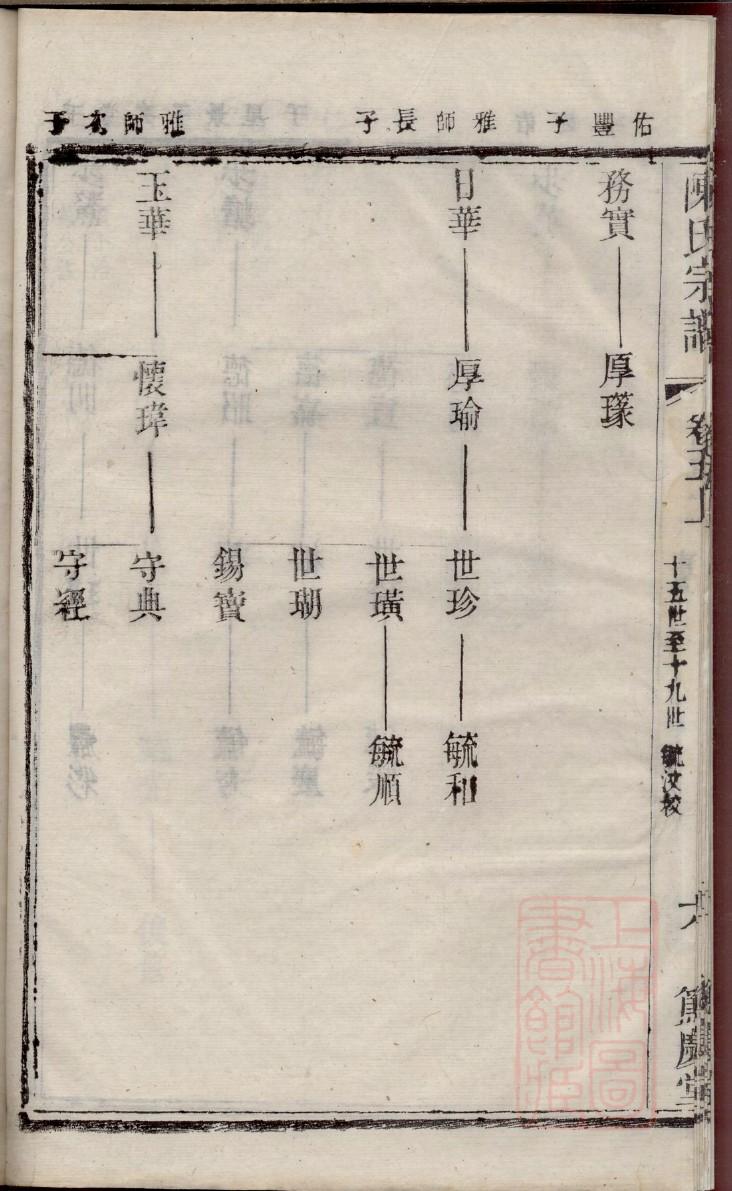 陳氏宗譜
卷五上
十五世至十九世
毓汶校
篤慶堂
佑豐子
務實
厚瑑
雅師長子
日華
厚瑜
世珍
毓和
世璜
毓順
世瑚
錫寶
雅師次子
玉華
懷瑋
守典
守經
上海圖書館藏